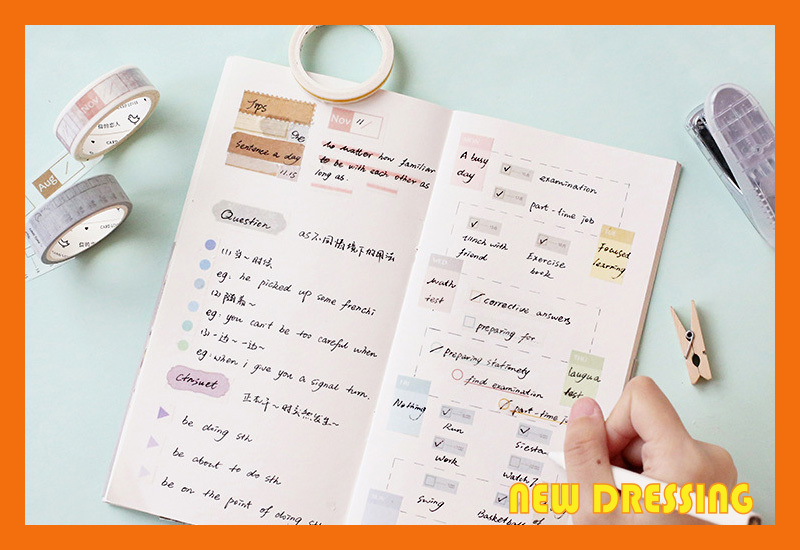 Nov
CARD LOVER
Aug
Tips
Sentence a day
11.15
Nov 11/
no matter how familiar
to be with each other as
long as.
Question
as不同情境下的用法
(1) 当~时候
eg: he picked up some frenchi
(2) 随着~
eg: you can't be too careful when
(3) 一边~一边~
eg: when i give you a signal turn.
正在干~时突然发生~
be doing sth
be about to do sth
be on the point of doing sth
A busy
day
examination
part-time job
lunch with
friend
Exercise
book
Focused
learning
math
test
corrective answers
preparing for
preparing stationety
find examination
part-time jo
langua
test
Nothing
Run
Siesta
work
watch
Swing
Basketball of
NEW DRESSING